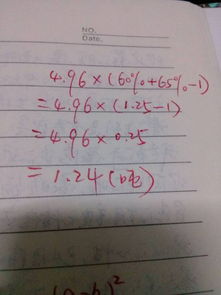 NO.
Date.
4.96×(60%+65%-1)
=4.96×(1.25-1)
=4.96×0.25
=1.24(吨)